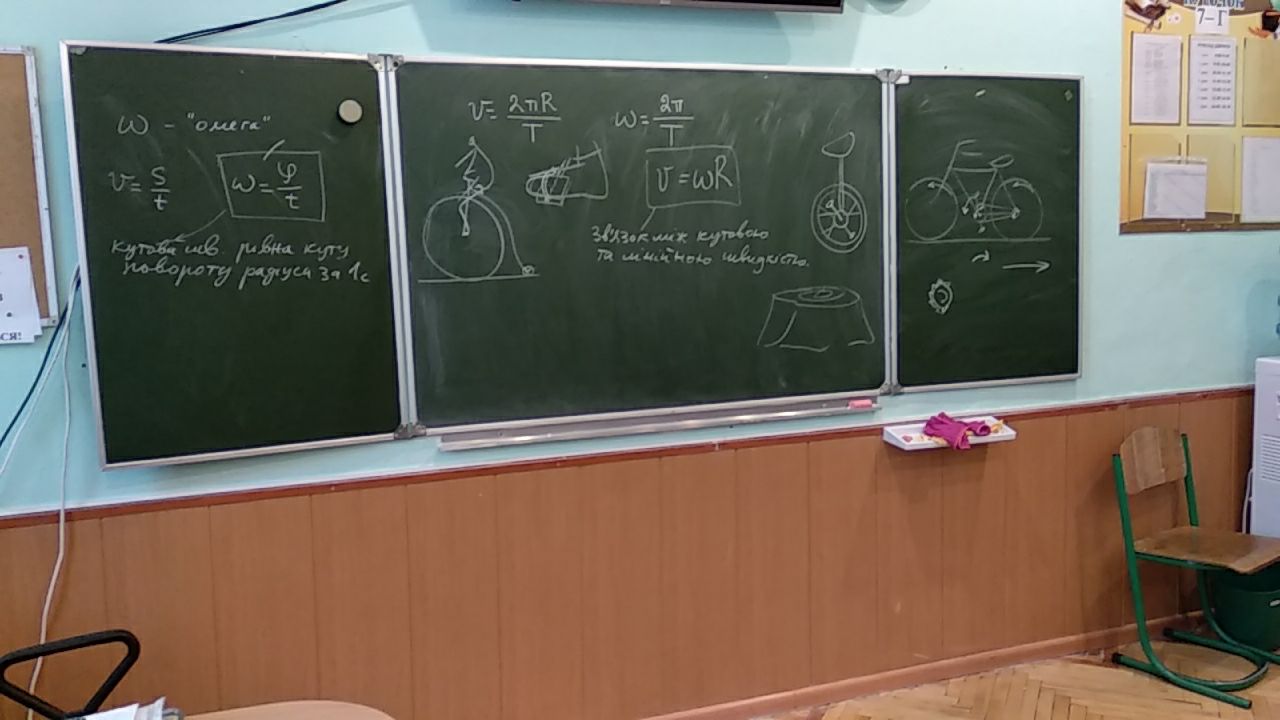 ω - "омега"
v = S/t
ω = φ/t
кутова шв. рівна куту
повороту радіуса за 1с
v = 2πR/T
ω = 2π/T
v = ωR
Зв'язок між кутовою
та лінійною швидкістю.
7-Г